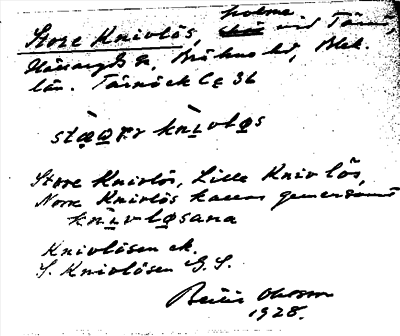 Store Knivlös, holme vid Tärnö,
Hällaryds sn, Bräkne hd, Blek.
län. Tärnöck CE 36
stæ̀ǫrr knìvløs
Store Knivlös, Lille Knivlös,
Norr Knivlös kallas gemensamt
knìvløsana
Knivlösen ek.
S. Knivlösen G.S.
Ohlsson
1928.